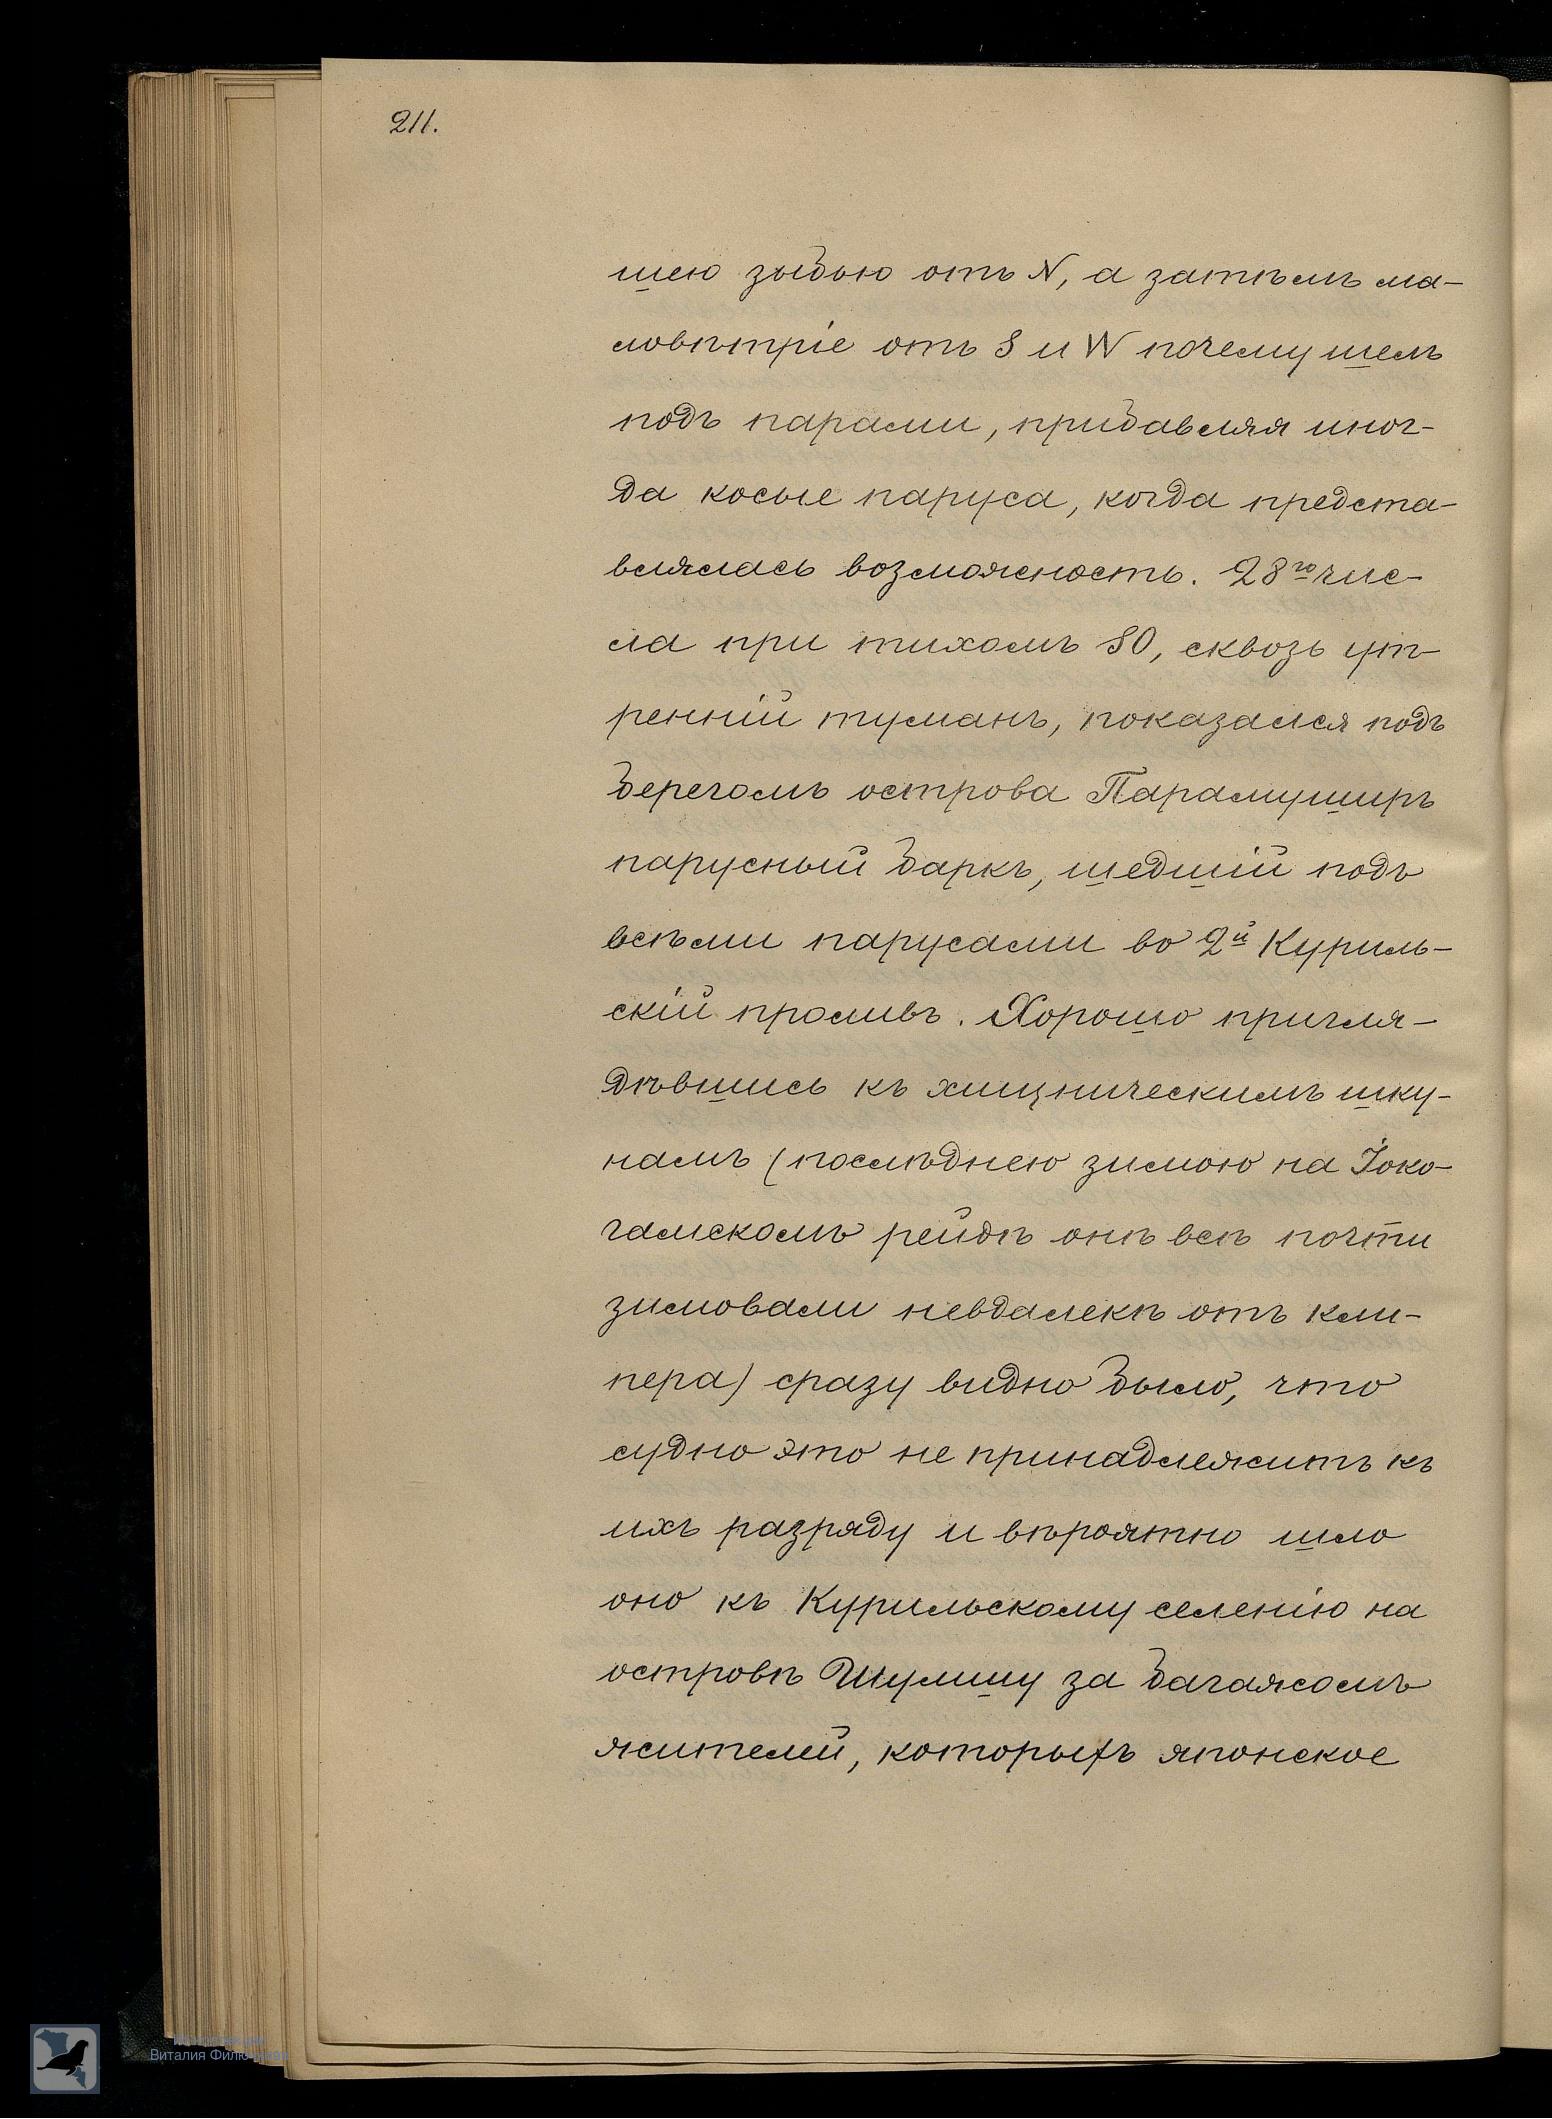 211.
шею зыбью отъ N, а затѣмъ ма-
ловѣтріе отъ S и W почему шелъ
подъ парами, прибавляя иног-
да косые паруса, когда предста-
влялась возможность. 28го чис-
ла при тихомъ SO, сквозь ут-
ренній туманъ, показался подъ
берегомъ острова Парамуширъ
парусный баркъ, шедшій подъ
всѣми парусами во 2й Куриль-
скій проливъ. Хорошо пригля-
дѣвшись къ хищническимъ шку-
намъ (послѣднею зимою на Іоко-
гамскомъ рейдѣ онѣ всѣ почти
зимовали невдалекѣ отъ кли-
пера) сразу видно было, что
судно это не принадлежитъ къ
ихъ разряду и вѣроятно шло
оно къ Курильскому селенію на
островѣ Шумшу за багажомъ
жителей, которыхъ японское
Виталия